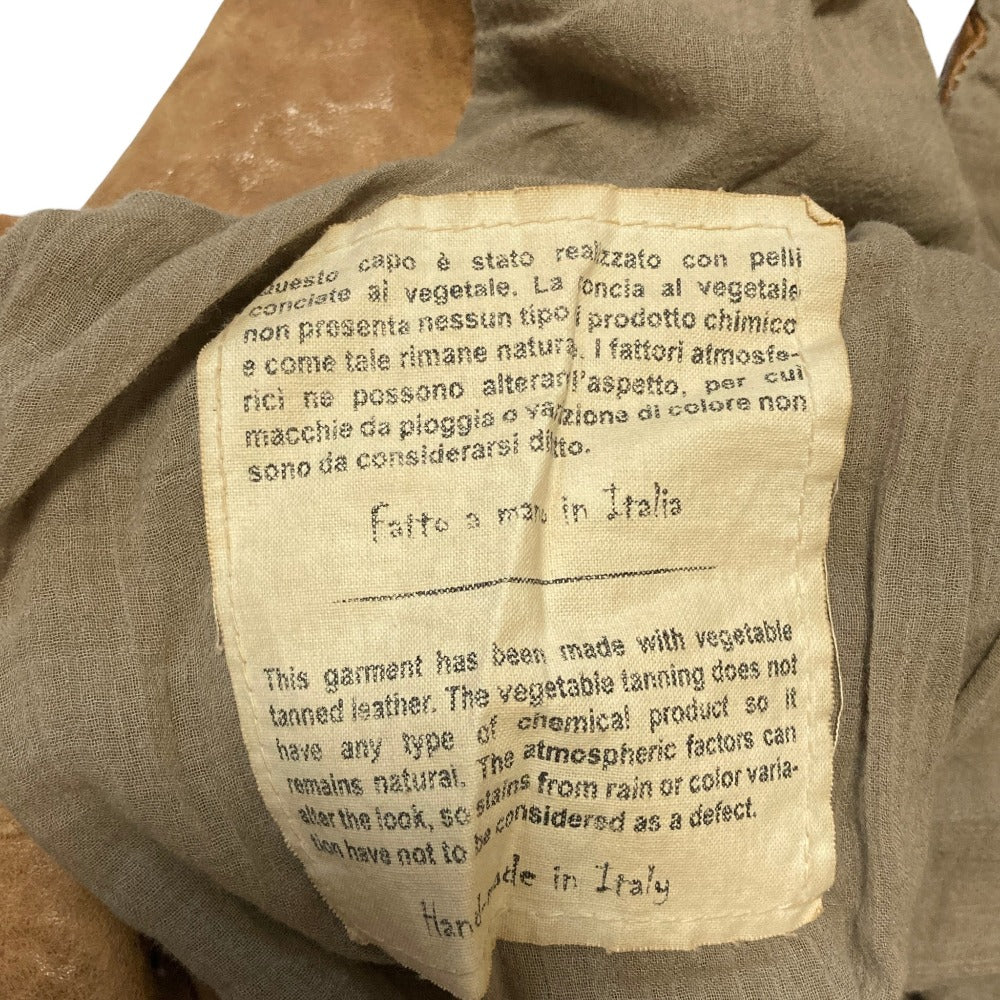 questo capo è stato realizzato con pelli
conciate al vegetale. La concia al vegetale
non presenta nessun tipo i prodotto chimico
e come tale rimane natura. I fattori atmosfe-
rici ne possono alterar l'aspetto, per cui
macchie da pioggia o variazione di colore non
sono da considerarsi ditto.
Fatto a mano in Italia
This garment has been made with vegetable
tanned leather. The vegetable tanning does not
have any type of chemical product so it
remains natural. The atmospheric factors can
alter the look, so stains from rain or color varia-
tion have not to be considered as a defect.
Hand-made in Italy